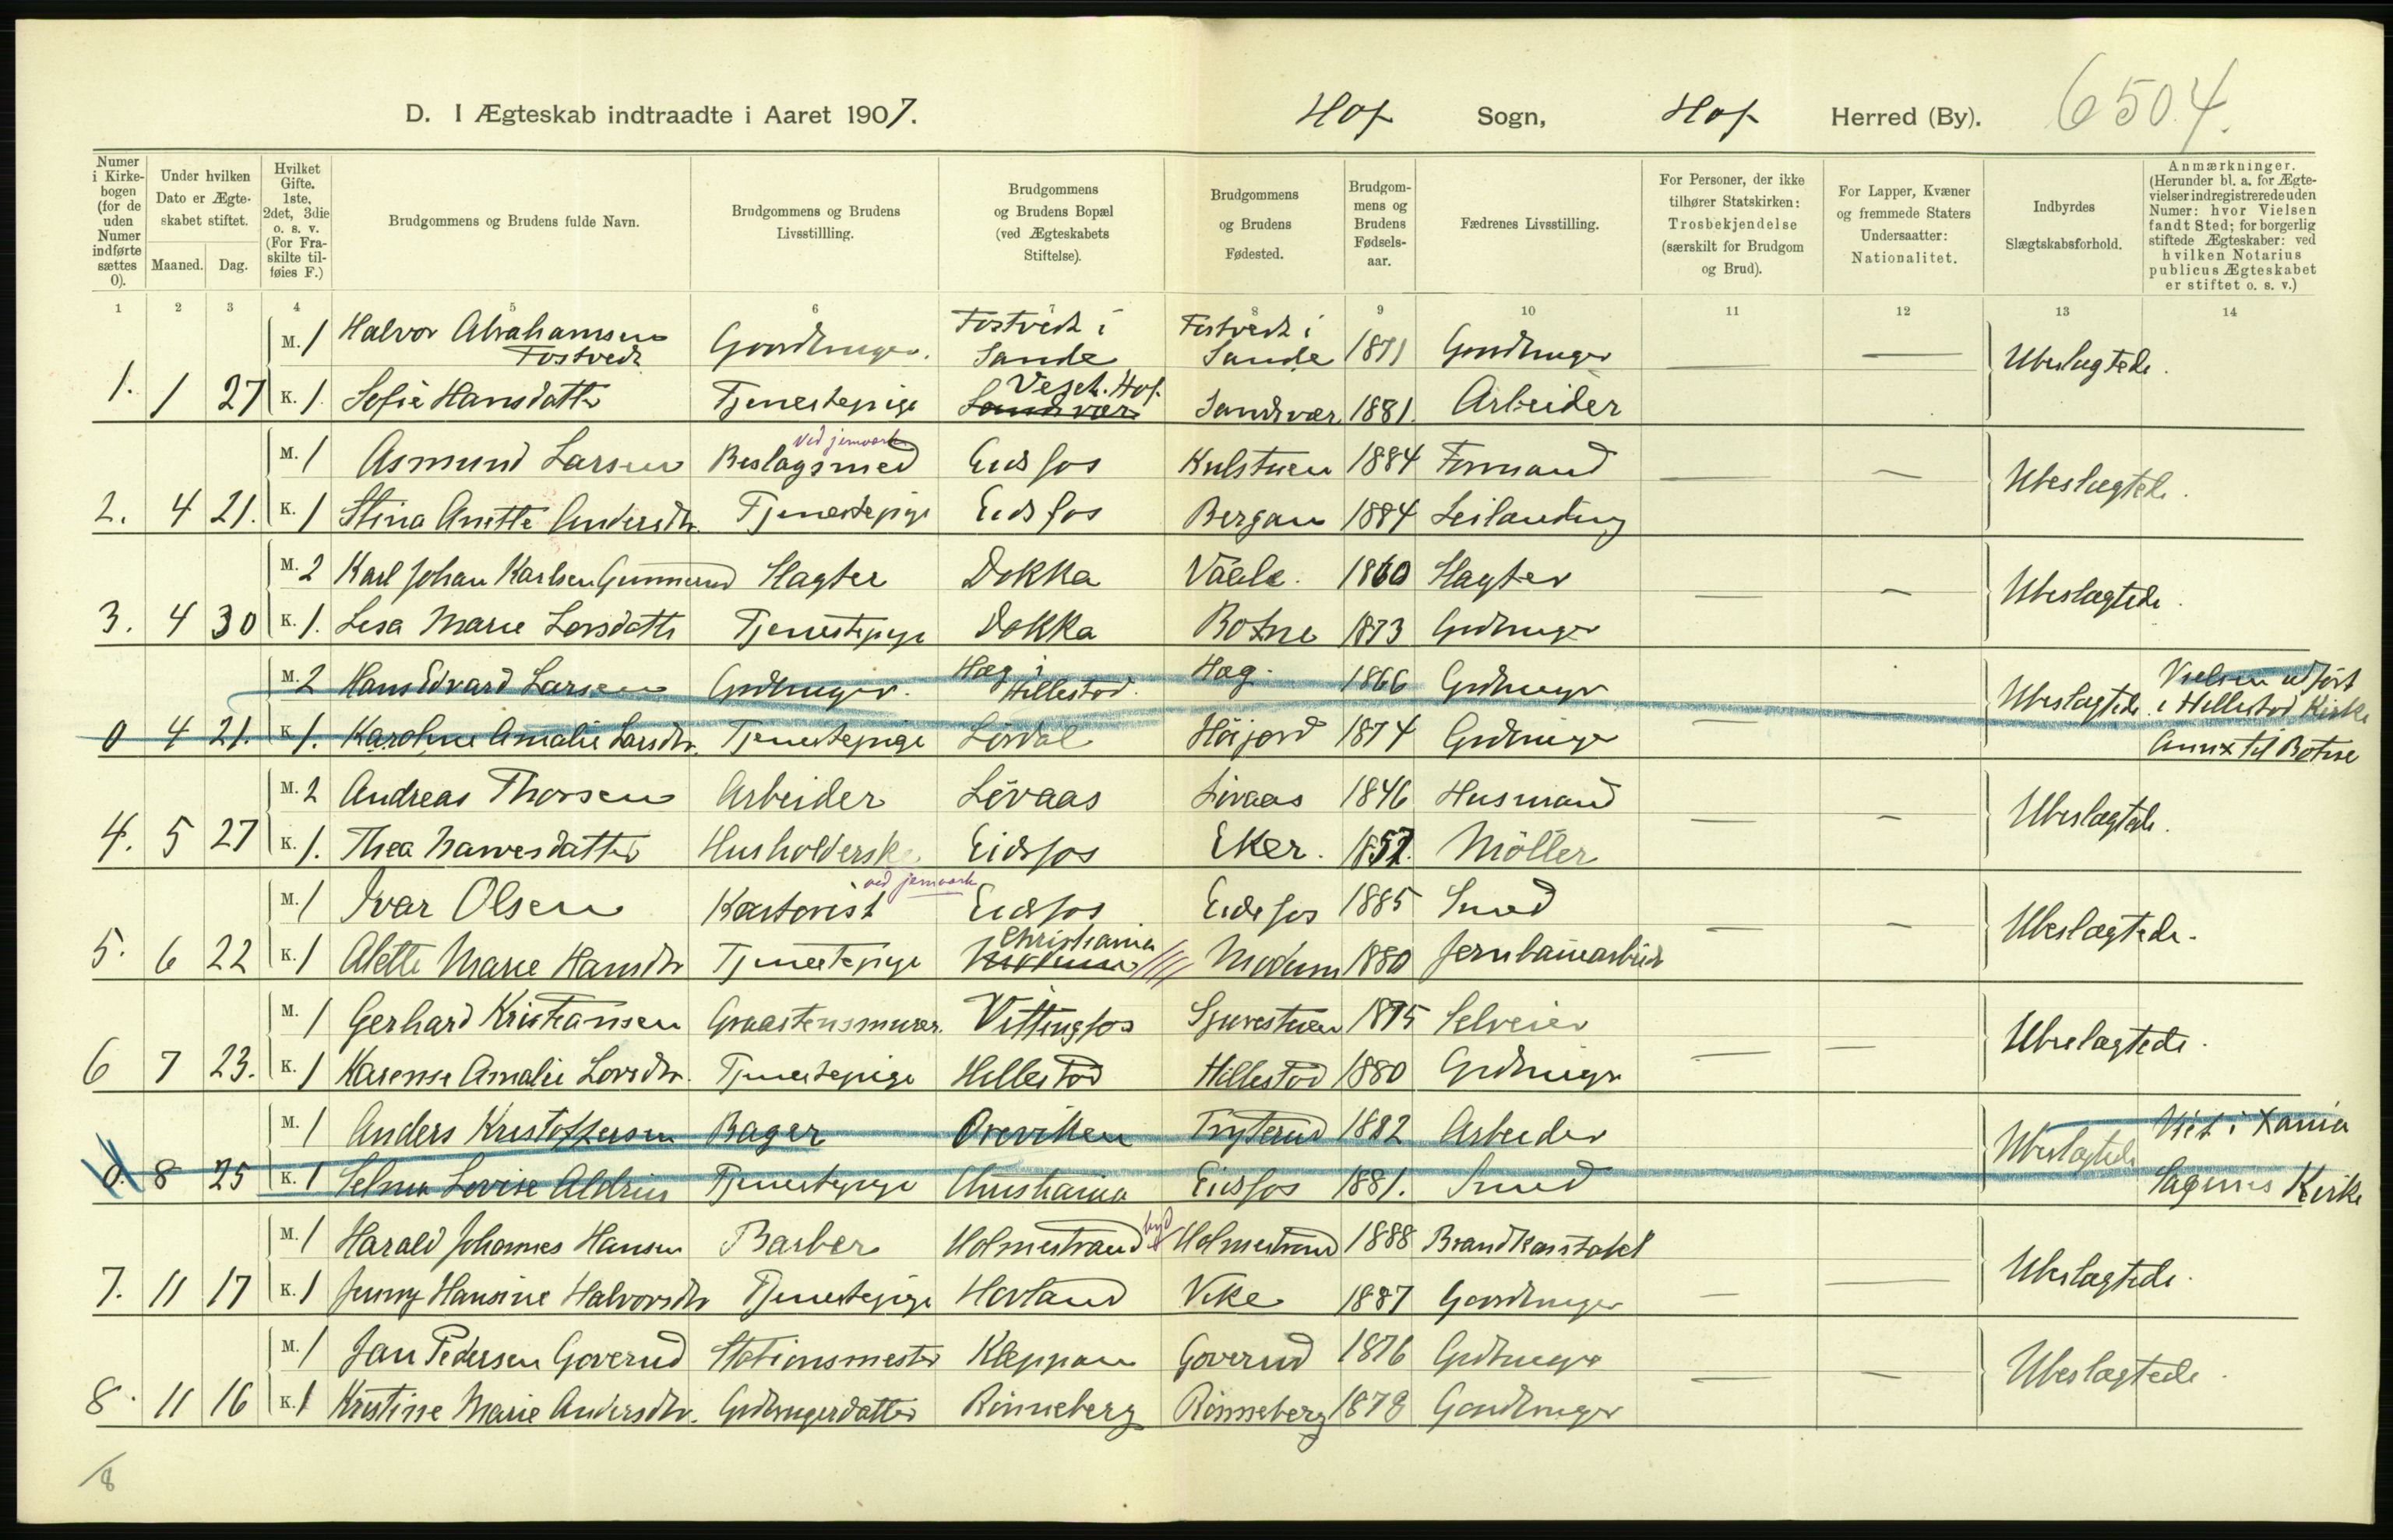 D. I Ægteskab indtraadte i Aaret 1907. Hof Sogn, Hof Herred (By). 6504.
Numer i Kirkebogen (for de uden Numer indførte sættes 0).
Under hvilken Dato er Ægteskabet stiftet.
Maaned. Dag.
Hvilket Gifte. 1ste, 2det, 3die o. s. v. (For Fraskilte tilføies F.)
Brudgommens og Brudens fulde Navn.
Brudgommens og Brudens Livsstillling.
Brudgommens og Brudens Bopæl (ved Ægteskabets Stiftelse).
Brudgommens og Brudens Fødested.
Brudgommens og Brudens Fødselsaar.
Fædrenes Livsstilling.
For Personer, der ikke tilhører Statskirken: Trosbekjendelse (særskilt for Brudgom og Brud).
For Lapper, Kvæner og fremmede Staters Undersaatter: Nationalitet.
Indbyrdes Slægtskabsforhold.
Anmærkninger. (Herunder bl. a. for Ægtevielser indregistrerede uden Numer: hvor Vielsen fandt Sted; for borgerlig stiftede Ægteskaber: ved hvilken Notarius publicus Ægteskabet er stiftet o. s. v.)
1 2 3 4 5 6 7 8 9 10 11 12 13 14
M. 1 Halvor Abrahamsen Tostvedt Gaardbruger. Tostvedt i Sande Tostvedt i Sande 1871 Gaardbruger — — Ubeslægtede.
1. 1 27 K. 1 Sofie Hansdatter Tjenestepige Sandsvær Sandsvær 1881. Arbeider
M. 1 Asmund Larsen Beslagsmed ved jernværk Eidsfos Kulstuen 1884 Formand — — Ubeslægtede.
2. 4 21. K. 1 Stina Anette Andersdtr. Tjenestepige Eidsfos Bergan 1884 Leilænding
M. 2 Karl Johan Karlsen Gunnerud Slagter Dokka Våale. 1860 Slagter — — Ubeslægtede.
3. 4 30 K. 1. Lesa Marie Larsdatter Tjenestepige Dokka Botne 1873 Grdbruger
M. 2 Hans Edvard Larsen Grdbruger. Hæg i Hillestad. Hæg. 1866 Grdbruger — Ubeslægtede. Vielsen udført i Hillestad Kirke
0 4 21. K. 1. Karoline Amalie Larsdtr. Tjenestepige Lørdal Höijord 1874 Grdbruger Annex til Botne
M. 2 Andreas Thorsen Arbeider Lövaas Lövaas 1846 Husmand — — Ubeslægtede.
4. 5 27 K. 1. Thea Hansdatter Husholderske Eidsfos Eker. 1857. Möller
M. 1 Ivar Olsen ved jernværk Eidsfos Eidsfos 1885 Smed — — Ubeslægtede.
5. 6 22 K. 1 Alette Marie Hansdtr Tjenestepige Christiania Modum Modum 1880 Jernbanearbeider
M. 1 Gerhard Kristiansen Graastensmurer. Vittingfos 1875 Selveier — — Ubeslægtede.
6 7 23. K. 1 Karense Amalie Larsdtr. Tjenestepige Hillestad Hillestad 1880 Grdbruger
M. 1 Anders Kristoffersen Bager Oreviken Tryterud 1882 Arbeider Ubeslægtede Viet i Xania
0. 8 25 K. 1 Selma Lovise Aldrin Tjenestepige Christiania Eidsfos 1881. Smed Sagenes Kirke
M. 1 Harald Johannes Hansen Barber Holmestrand by Holmestrand 1888 Ubeslægtede.
7. 11 17 K. 1 Jenny Hansine Halvorsdtr Tjenestepige Hovland Vike 1887 Gaardbruger — —
M. 1 Jan Pedersen Goverud Stationsmester Kleppan Goverud 1876 Grdbruger — — Ubeslægtede.
8. 11 16 K. 1 Kristine Marie Andersdtr. Grdbrugerdatter Rönneberg Rönneberg 1878 Gaardbruger
8